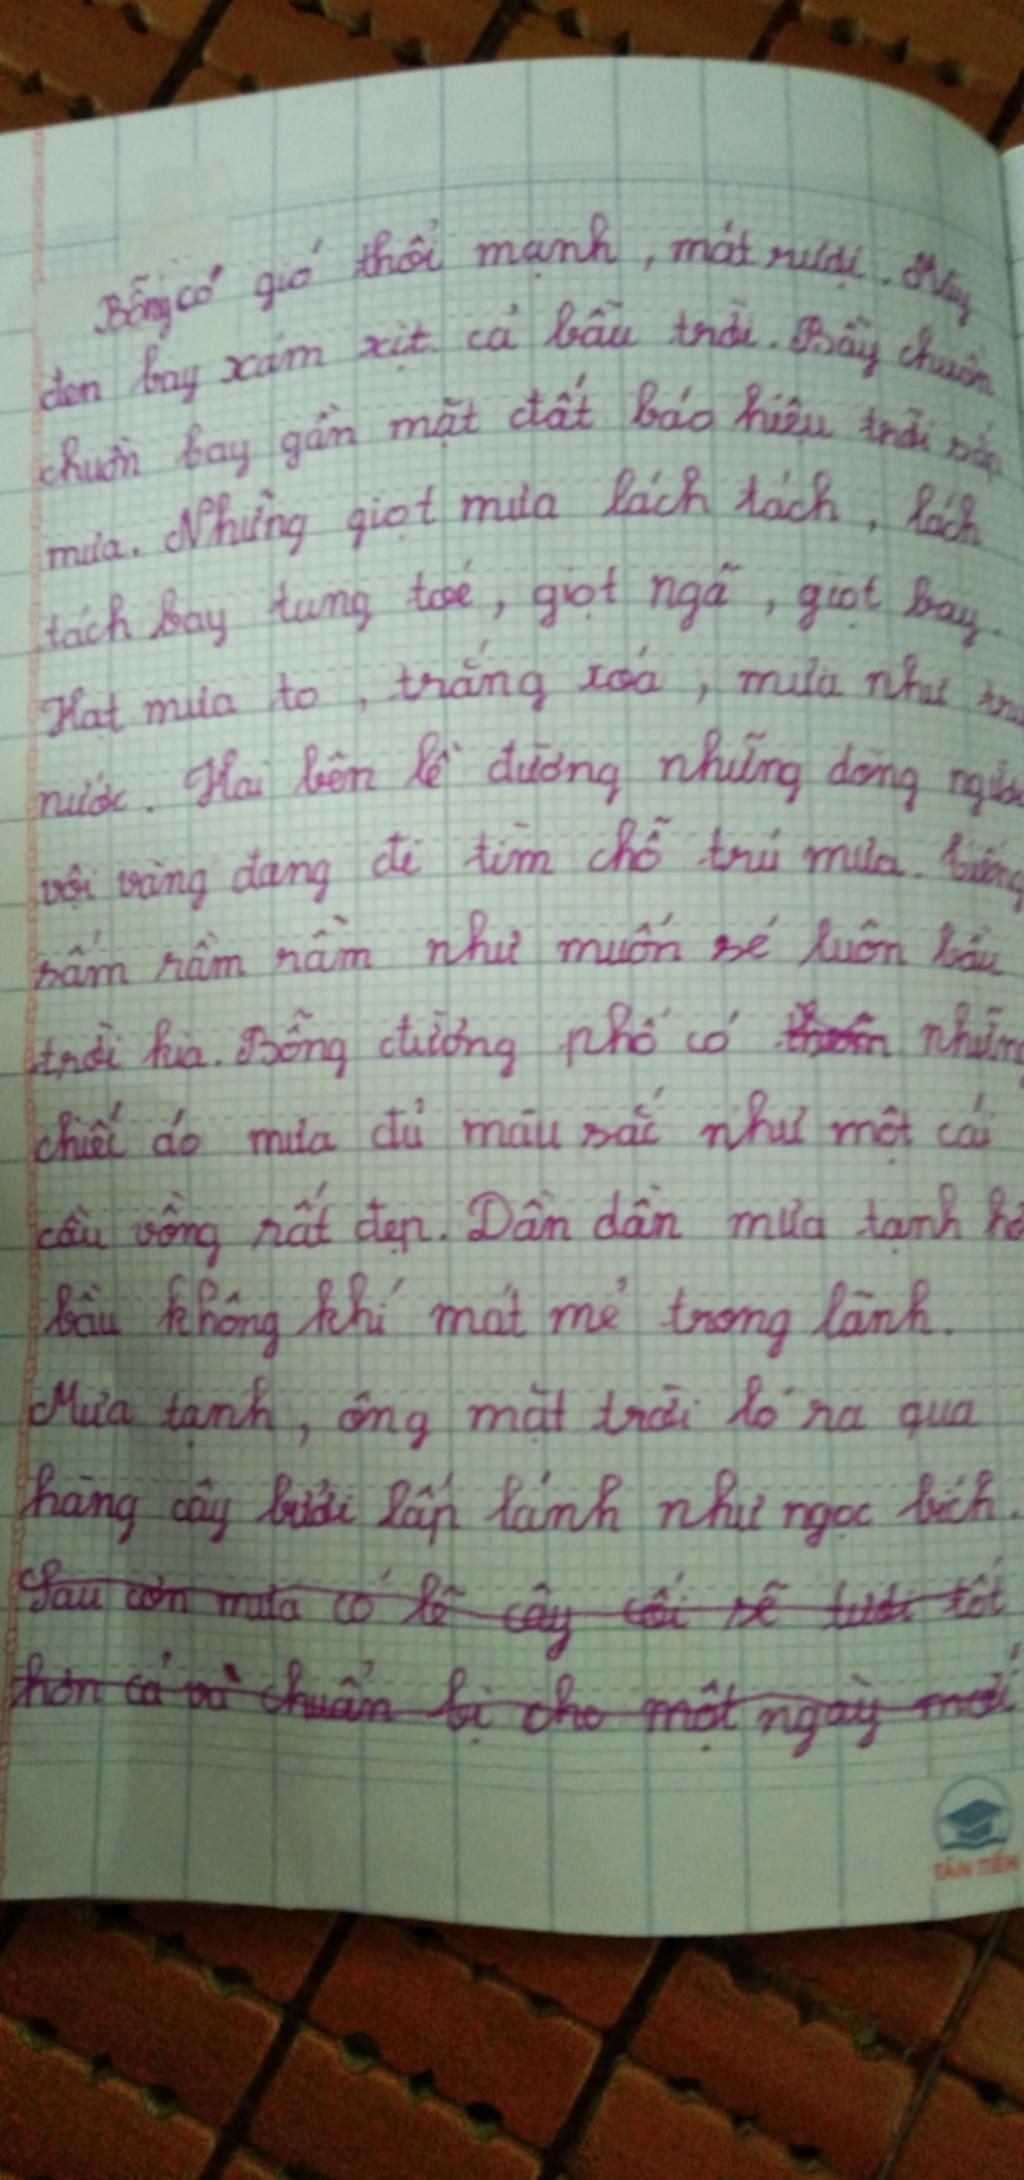 Bỗng có gió thổi mạnh, mát rượi. Mây
đen bay xám xịt cả bầu trời. Bầy chuồn
chuồn bay gần mặt đất báo hiệu trời sắp
mưa. Những giọt mưa lách tách, lách
tách bay tung toé, giọt ngã, giọt bay.
Hạt mưa to, trắng xoá, mưa như
nước. Hai bên lề đường những dòng người
vội vàng đang đi tìm chỗ trú mưa. Tiếng
sấm rầm rầm như muốn xé luôn bầu
trời kia. Bỗng đường phố có những
chiếc áo mưa đủ màu sắc như một cái
cầu vồng rất đẹp. Dần dần mưa tạnh
bầu không khí mát mẻ trong lành.
Mưa tạnh, ông mặt trời ló ra qua
hàng cây bưởi lấp lánh như ngọc bích.
Sau cơn mưa có lẽ cây cối sẽ tươi tốt
hơn cả và chuẩn bị cho một ngày mới
TÂN TIẾN